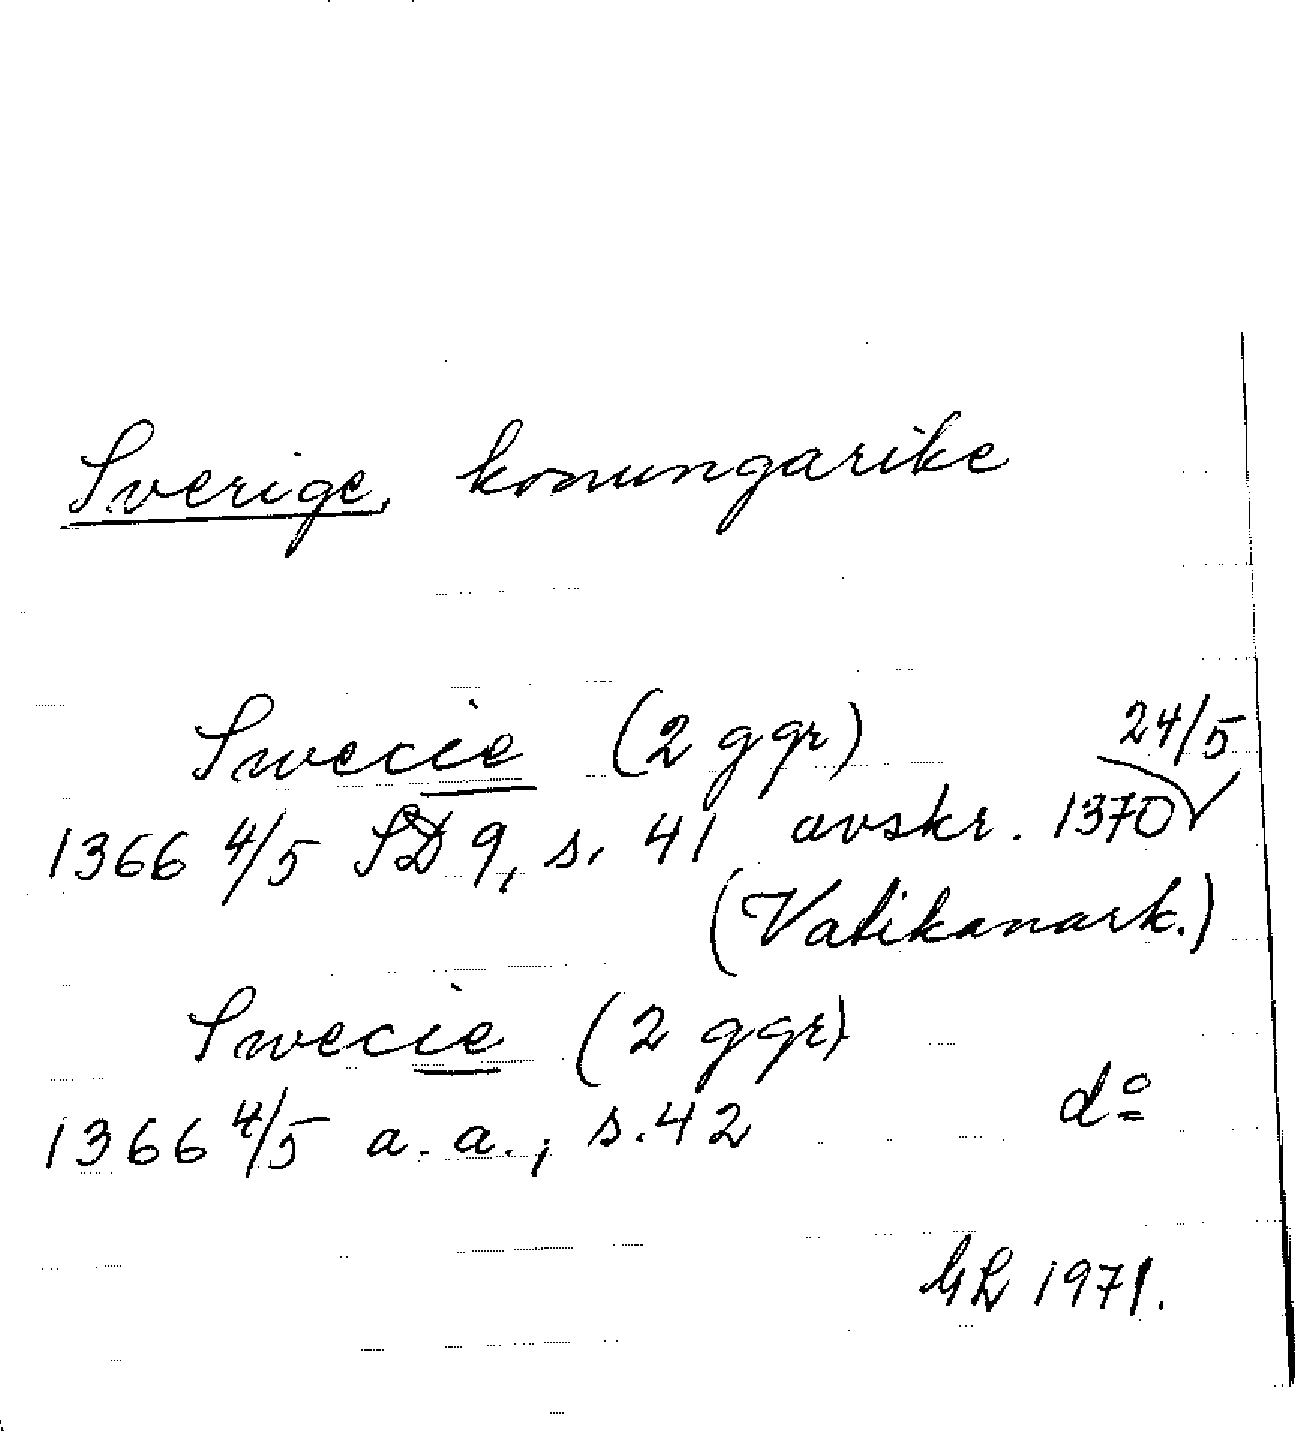 Sverige, konungarike
Swecie (2 ggr)
24/5
1366 4/5 SD 9, s. 41 avskr. 1370
(Vatikanark.)
Swecie (2 ggr)
1366 4/5 a. a., s. 42 do
GL 1971.